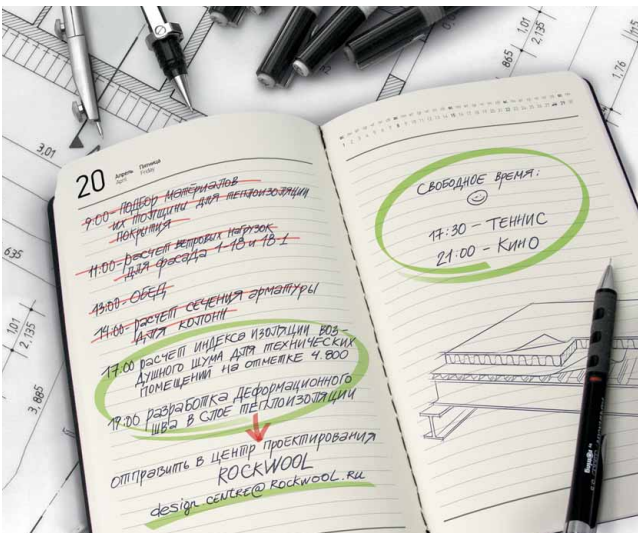 20 Апрель Пятница
April Friday
9:00 - ПОДБОР МАТЕРИАЛОВ
ИХ ТОЛЩИНЫ ДЛЯ ТЕПЛОИЗОЛЯЦИИ
ПОКРЫТИЯ
11:00 - РАСЧЕТ ВЕТРОВЫХ НАГРУЗОК
ДЛЯ ФАСАДА 1-18 И 18-1
13:00 - ОБЕД
14:00 - РАСЧЕТ СЕЧЕНИЯ АРМАТУРЫ
ДЛЯ КОЛОНН
17.00 РАСЧЕТ ИНДЕКСА ИЗОЛЯЦИИ ВОЗ-
ДУШНОГО ШУМА ДЛЯ ТЕХНИЧЕСКИХ
ПОМЕЩЕНИЙ НА ОТМЕТКЕ 4.800
19:00 РАЗРАБОТКА ДЕФОРМАЦИОННОГО
ШВА В СЛОЕ ТЕПЛОИЗОЛЯЦИИ
ОТПРАВИТЬ В ЦЕНТР ПРОЕКТИРОВАНИЯ
ROCKWOOL
design.centre@Rockwool.ru
СВОБОДНОЕ ВРЕМЯ:
17:30 - ТЕННИС
21:00 - КИНО
3,01
635
1,01
2,135
3,885
865
1,01
2,135
1,76
rOtring